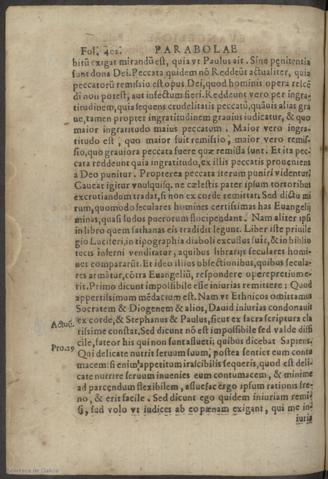 Fol. 402. PARABOLAE
bitū exigat mirandū est, quia vt Paulus ait. Sine penitentia
sunt dona Dei. Peccata quidem nō Reddeūt actualiter, quia
peccatorū remissio est opus Dei, quod hominis opera rescē
di non potest, aut infectum fieri. Reddeunt vero per ingra-
titudinem, quia sequens crudelitatis peccatū, quāuis alias gra
ue, tamen propter ingratitudinem grauius iudicatur, & quo
maior ingratitudo maius peccatum. Maior vero ingra-
titudo est, quo maior fuit remissio, maior vero remis-
sio, quo grauiora peccata fuere quæ remissa sunt. Et ita pec-
cata reddeunt quia ingratitudo, ex illis peccatis proueniens
a Deo punitur. Propterea peccata iterum puniri videntur.
Caueat igitur vnusquisq. ne cælestis pater ipsum tortoribus
excrutiandum tradat, si non ex corde remittat. Sed dictu mi
rum, quomodo seculares homines certissimas has Euangelij
minas, quasi ludos puerorum flocipendant. Nam aliter ipsi
in libro quem sathanas eis tradidit legunt. Liber iste priuile
gio Luciferi, in tipographia diaboli excussus fuit, & in biblio
tecis inferni venditatur, a quibus librarijs seculares homi-
nes compararūt. Et ideo illius obiectionibus, quibus secula-
res armātur, cōtra Euangeliū, respondere operepretium e-
rit. Primo dicunt impossibile esse iniurias remittere: Quod
appertissimum mēdacium est. Nam vt Ethnicos omittamus
Socratem & Diogenem & alios, Dauid iniurias condonauit
Actuū. ex corde, & Stephanus & Paulus, sicut ex sacra scriptura cla
rissime constat. Sed dicunt nō est impossibile sed valde diffi
cile, fateor his qui non sunt assueti: quibus dicebat Sapiens.
Pro. 29 Qui delicate nutrit seruum suum, postea sentiet eum contu
macem: si enim appetitum irascibilis sequeris, quod est deli-
cate nutrire seruum inuenies eum contumacem, & minime
ad parcendum flexibilem, assuefac ergo ipsum rationis fre-
no, & erit facile. Sed dicunt ego quidem iniuriam remi-
si, sed volo vt iudices ab eo pænam exigant, qui me in-
iuria